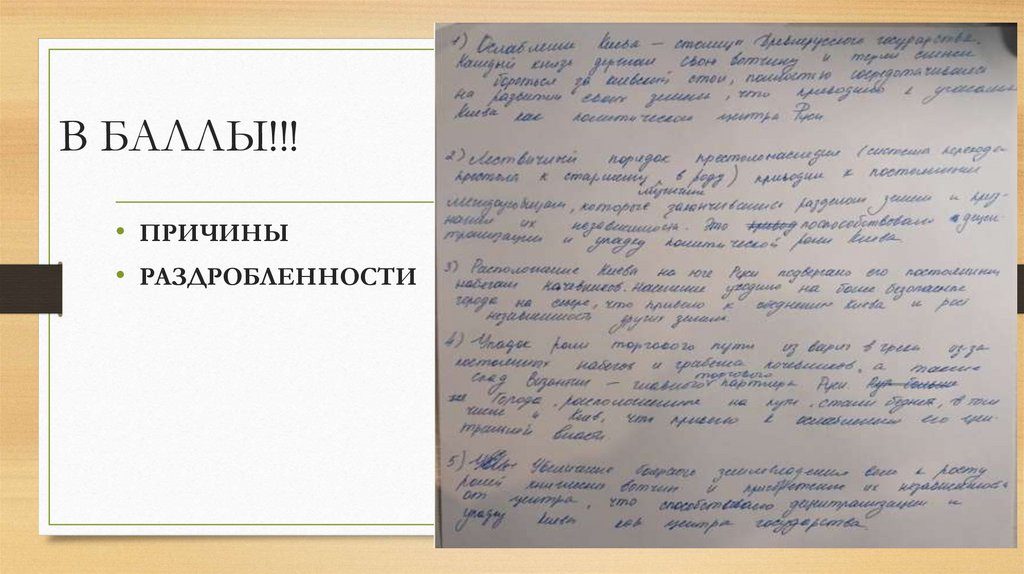 В БАЛЛЫ!!!
• ПРИЧИНЫ
• РАЗДРОБЛЕННОСТИ
1) Ослабление Киева – столицы Древнерусского государства.
Каждый князь держал свою вотчину и терял
бороться за киевский стол, полностью сосредотачиваясь
на развитии своих земель, что приводило к
Киева как политического центра Руси
2) Лествичный порядок престолонаследия (система перехода
престола к старшему в роду) приводил к постоянным
междоусобицам, которые заканчивались разделом земли и приз-
нанием их независимости. Это поспособствовало децен-
трализации и упадку политической роли Киева.
3) Расположение Киева на юге Руси подвергало его постоянным
набегам кочевников. Население уходило на более безопасные
города на севере, что привело к обеднению Киева и рост
независимости других земель.
4) Упадок роли торгового пути из варяг в греки из-за
постоянных набегов и грабежа кочевников, а также
спад Византии – главного торгового партнера Руси.
Города, расположенные на пути, стали беднеть, в том
числе и Киев, что привело к ослаблению его цен-
тральной власти
5) Увеличение боярского землевладения вело к росту
ролей княжеских вотчин и приобретение их независимости
от центра, что способствовало децентрализации и
упадку Киева как центра государства